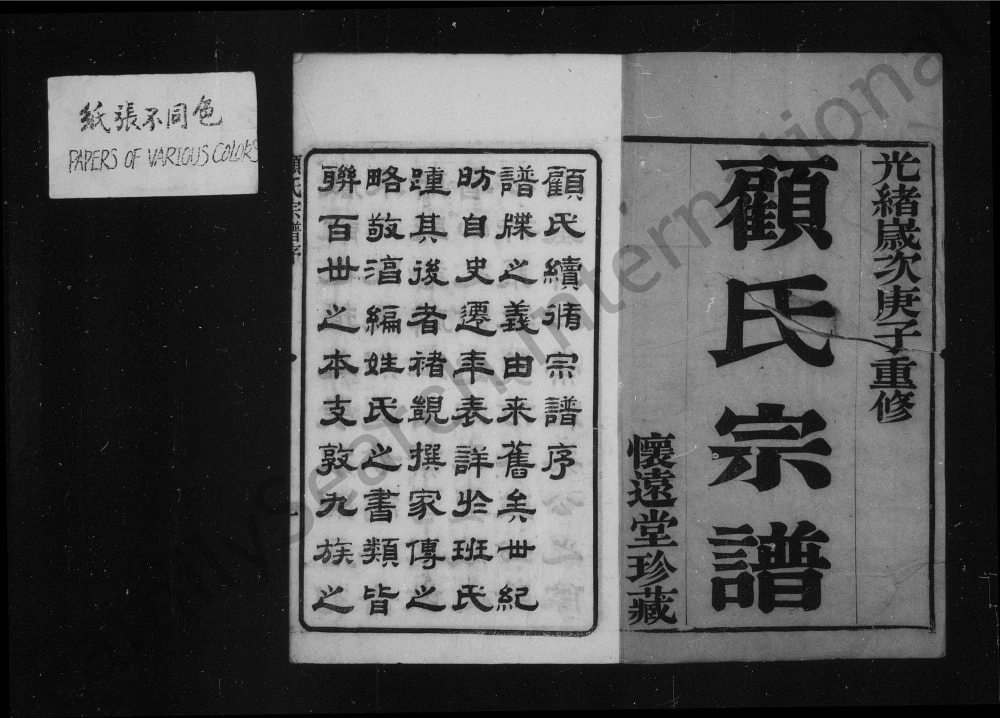 光緒歲次庚子重修
顧氏宗譜
懷遠堂珍藏
顧氏續脩宗譜序
譜牒之義由來舊矣丗紀
昉自史遷年表詳於班氏
踵其後者褚覬撰家傳之
略敬濇編姓氏之書類皆
聨百丗之本支敦九族之
顧氏宗譜序
一
紙張不同色
PAPERS OF VARIOUS COLORS